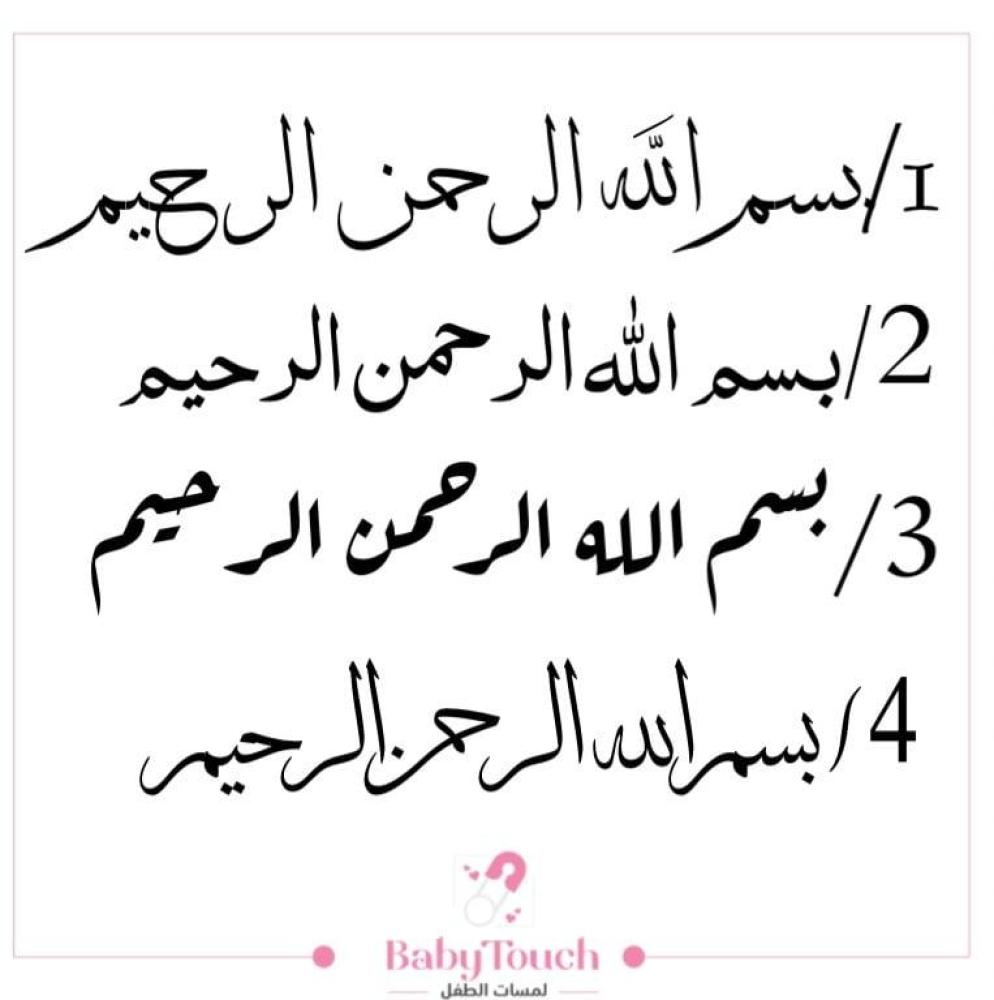 1/ بسم الله الرحمن الرحيم
2/ بسم الله الرحمن الرحيم
3/ بسم الله الرحمن الرحيم
4/ بسم الله الرحمن الرحيم
BabyTouch
لمسات الطفل